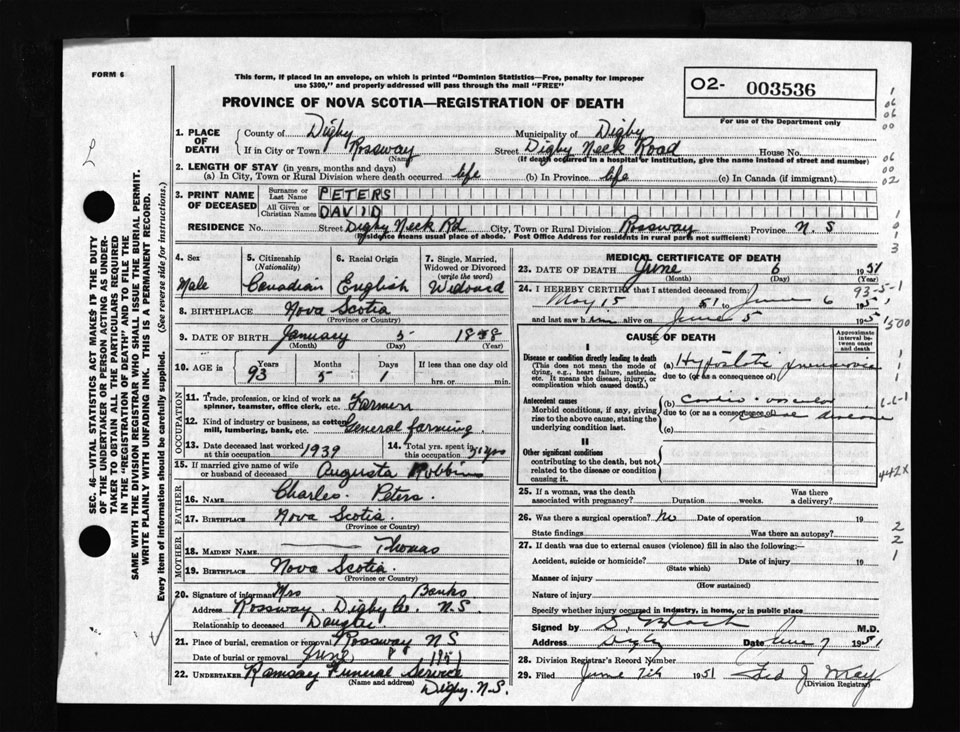 FORM 6
This form, if placed in an envelope, on which is printed "Dominion Statistics—Free, penalty for improper
use $300," and properly addressed will pass through the mail "FREE"
O2- 003536
PROVINCE OF NOVA SCOTIA—REGISTRATION OF DEATH
For use of the Department only
1. PLACE OF DEATH { County of Digby Municipality of Digby
If in City or Town Rossway (Name) Street Digby Neck Road House No.
(If death occurred in a hospital or institution, give the name instead of street and number)
2. LENGTH OF STAY (in years, months and days)
(a) In City, Town or Rural Division where death occurred life (b) In Province life (c) In Canada (if immigrant)
3. PRINT NAME OF DECEASED { Surname or Last Name PETERS
All Given or Christian Names DAVID
RESIDENCE No. Street Digby Neck Rd. City, Town or Rural Division Rossway Province N. S
(Residence means usual place of abode. Post Office Address for residents in rural parts not sufficient)
4. Sex Male
5. Citizenship (Nationality) Canadian
6. Racial Origin English
7. Single, Married, Widowed or Divorced (write the word) Widowed
8. BIRTHPLACE Nova Scotia
(Province or Country)
9. DATE OF BIRTH January 5 1858
(Month) (Day) (Year)
10. AGE in { Years 93 Months 5 Days 1 If less than one day old
hrs. or min.
OCCUPATION
11. Trade, profession or kind of work as spinner, teamster, office clerk, etc. Farmer
12. Kind of industry or business, as cotton mill, lumbering, bank, etc. General farming
13. Date deceased last worked at this occupation 1939
14. Total yrs. spent in this occupation 71 yrs
15. If married give name of wife or husband of deceased Augusta Robbins
FATHER
16. NAME Charles Peters
17. BIRTHPLACE Nova Scotia
(Province or Country)
MOTHER
18. MAIDEN NAME Thomas
19. BIRTHPLACE Nova Scotia
(Province or Country)
20. Signature of informant Mrs Banks
Address Rossway Digby Co. N. S.
Relationship to deceased Daughter
21. Place of burial, cremation or removal Rossway NS
Date of burial or removal June 8 1951
22. UNDERTAKER Ramsay Funeral Service
(Name and address) Digby. N.S.
MEDICAL CERTIFICATE OF DEATH
23. DATE OF DEATH June 6 1951
(Month) (Day) (Year)
24. I HEREBY CERTIFY that I attended deceased from:
May 15 51 to June 6 1951
and last saw him alive on June 5 1951
93-5-1
CAUSE OF DEATH
Approximate interval between onset and death
I
Disease or condition directly leading to death
(This does not mean the mode of dying, e.g., heart failure, asthenia, etc. It means the disease, injury, or complication which caused death.)
(a) Hypostatic pneumonia
due to (or as a consequence of)
Antecedent causes
Morbid conditions, if any, giving rise to the above cause, stating the underlying condition last.
(b) Cardio-vascular
due to (or as a consequence of) disease
(c)
II
Other significant conditions
contributing to the death, but not related to the disease or condition causing it.
442X
25. If a woman, was the death associated with pregnancy? Duration weeks. Was there a delivery?
26. Was there a surgical operation? No Date of operation 19
State findings Was there an autopsy?
27. If death was due to external causes (violence) fill in also the following:—
Accident, suicide or homicide? Date of injury 19
(State which)
Manner of injury
(How sustained)
Nature of injury
Specify whether injury occurred in industry, in home, or in public place
Signed by M.D.
Address Digby Date June 7 1951
28. Division Registrar's Record Number
29. Filed June 7th 1951
(Division Registrar)
SEC. 46—VITAL STATISTICS ACT MAKES IT THE DUTY
OF THE UNDERTAKER OR PERSON ACTING AS UNDER-
TAKER TO OBTAIN ALL THE PARTICULARS REQUIRED
IN THE "REGISTRATION OF DEATH" AND TO FILE THE
SAME WITH THE DIVISION REGISTRAR WHO SHALL ISSUE THE BURIAL PERMIT.
WRITE PLAINLY WITH UNFADING INK. THIS IS A PERMANENT RECORD.
Every item of information should be carefully supplied. (See reverse side for instructions.)